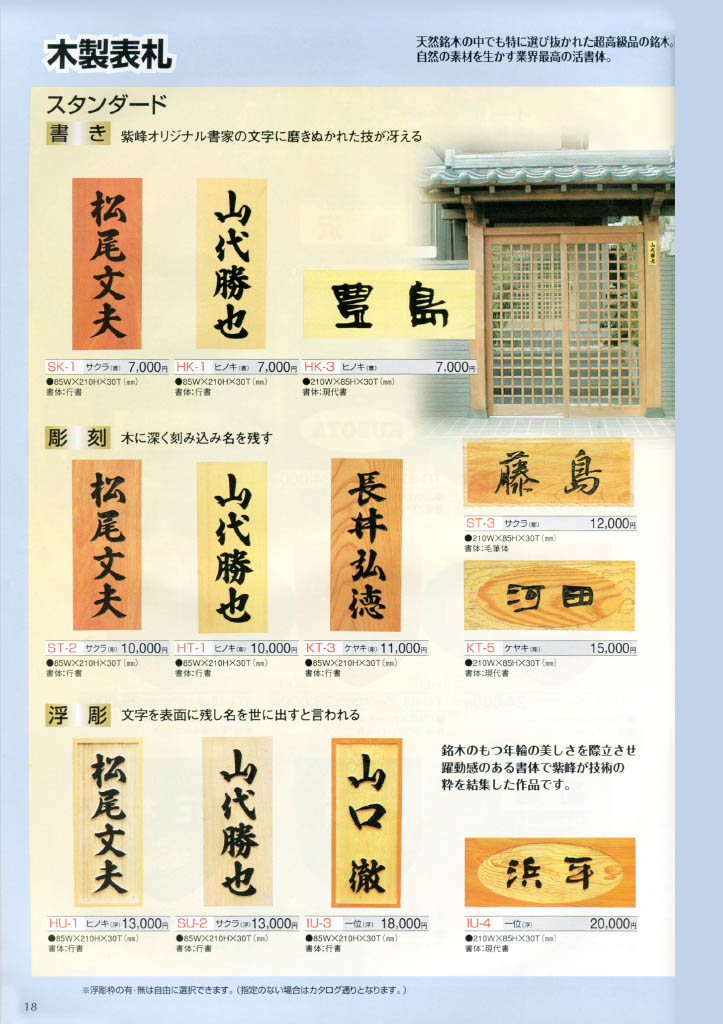 木製表札
天然銘木の中でも特に選び抜かれた超高級品の銘木。
自然の素材を生かす業界最高の活書体。
スタンダード
書き 紫峰オリジナル書家の文字に磨きぬかれた技が冴える
松尾文夫
山代勝也
豊島
山代勝也
SK-1 サクラ(書) 7,000円
●85W×210H×30T(㎜)
書体:行書
HK-1 ヒノキ(書) 7,000円
●85W×210H×30T(㎜)
書体:行書
HK-3 ヒノキ(書) 7,000円
●210W×85H×30T(㎜)
書体:現代書
彫刻 木に深く刻み込み名を残す
松尾文夫
山代勝也
長井弘徳
藤島
ST-3 サクラ(彫) 12,000円
●210W×85H×30T(㎜)
書体:毛筆体
河田
ST-2 サクラ(彫) 10,000円
●85W×210H×30T(㎜)
書体:行書
HT-1 ヒノキ(彫) 10,000円
●85W×210H×30T(㎜)
書体:行書
KT-3 ケヤキ(彫) 11,000円
●85W×210H×30T(㎜)
書体:行書
KT-5 ケヤキ(彫) 15,000円
●210W×85H×30T(㎜)
書体:現代書
浮彫 文字を表面に残し名を世に出すと言われる
松尾文夫
山代勝也
山口徹
銘木のもつ年輪の美しさを際立させ
躍動感のある書体で紫峰が技術の
粋を結集した作品です。
浜平
HU-1 ヒノキ(浮) 13,000円
●85W×210H×30T(㎜)
書体:行書
SU-2 サクラ(浮) 13,000円
●85W×210H×30T(㎜)
書体:行書
IU-3 一位(浮) 18,000円
●85W×210H×30T(㎜)
書体:行書
IU-4 一位(浮) 20,000円
●210W×85H×30T(㎜)
書体:現代書
※浮彫枠の有・無は自由に選択できます。(指定のない場合はカタログ通りとなります。)
18